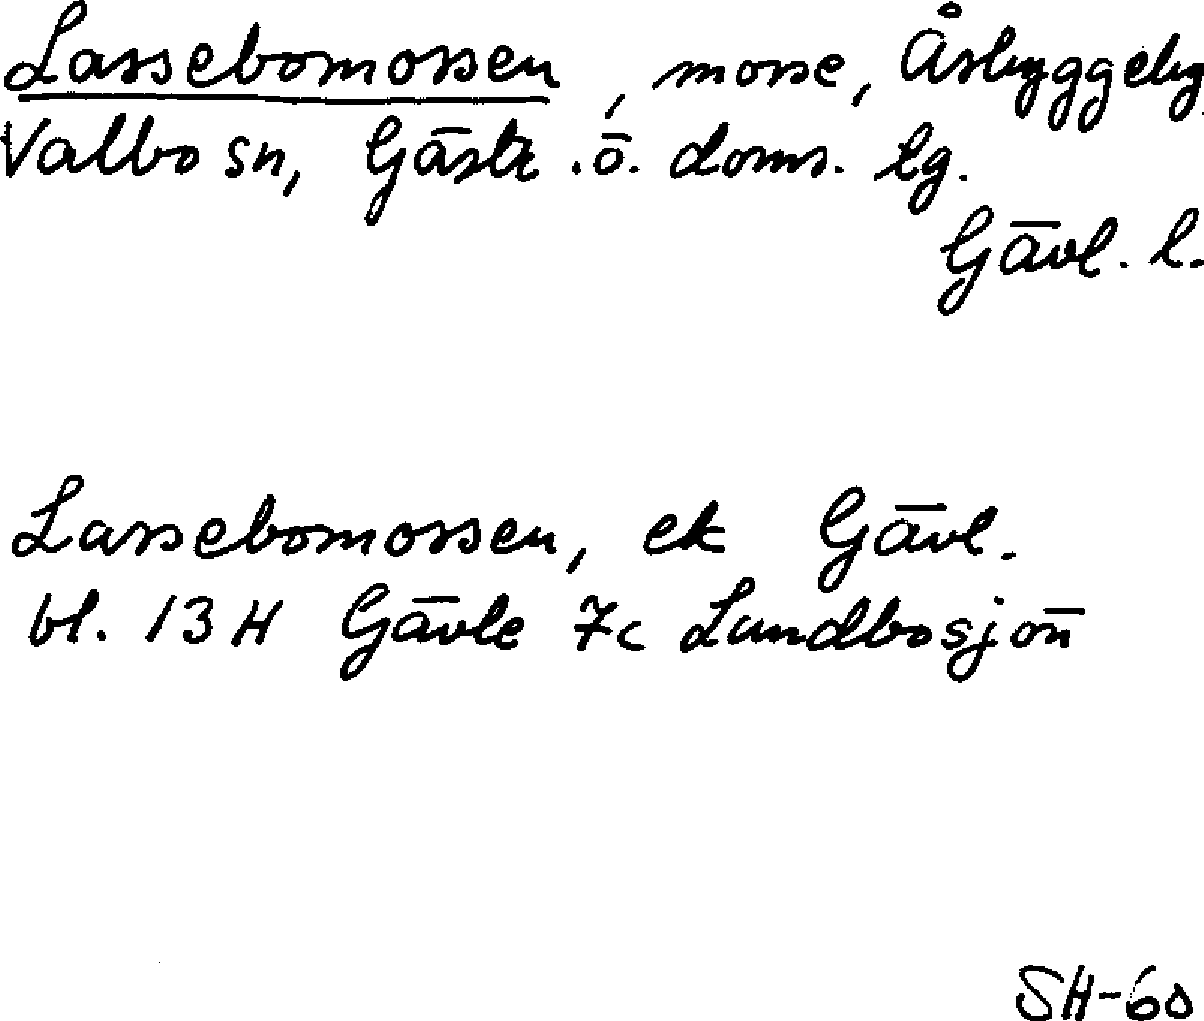 Lassebomossen, mosse, Åsbyggeby
Valbo sn, Gästr. ö. doms. lg.
Gävl. l.
Lassebomossen, ek Gävl.
bl. 13 H Gävle 7c Lundbosjön
SH-60